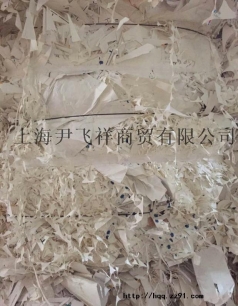 上海尹飞祥商贸有限公司
http://hqq.zz91.com